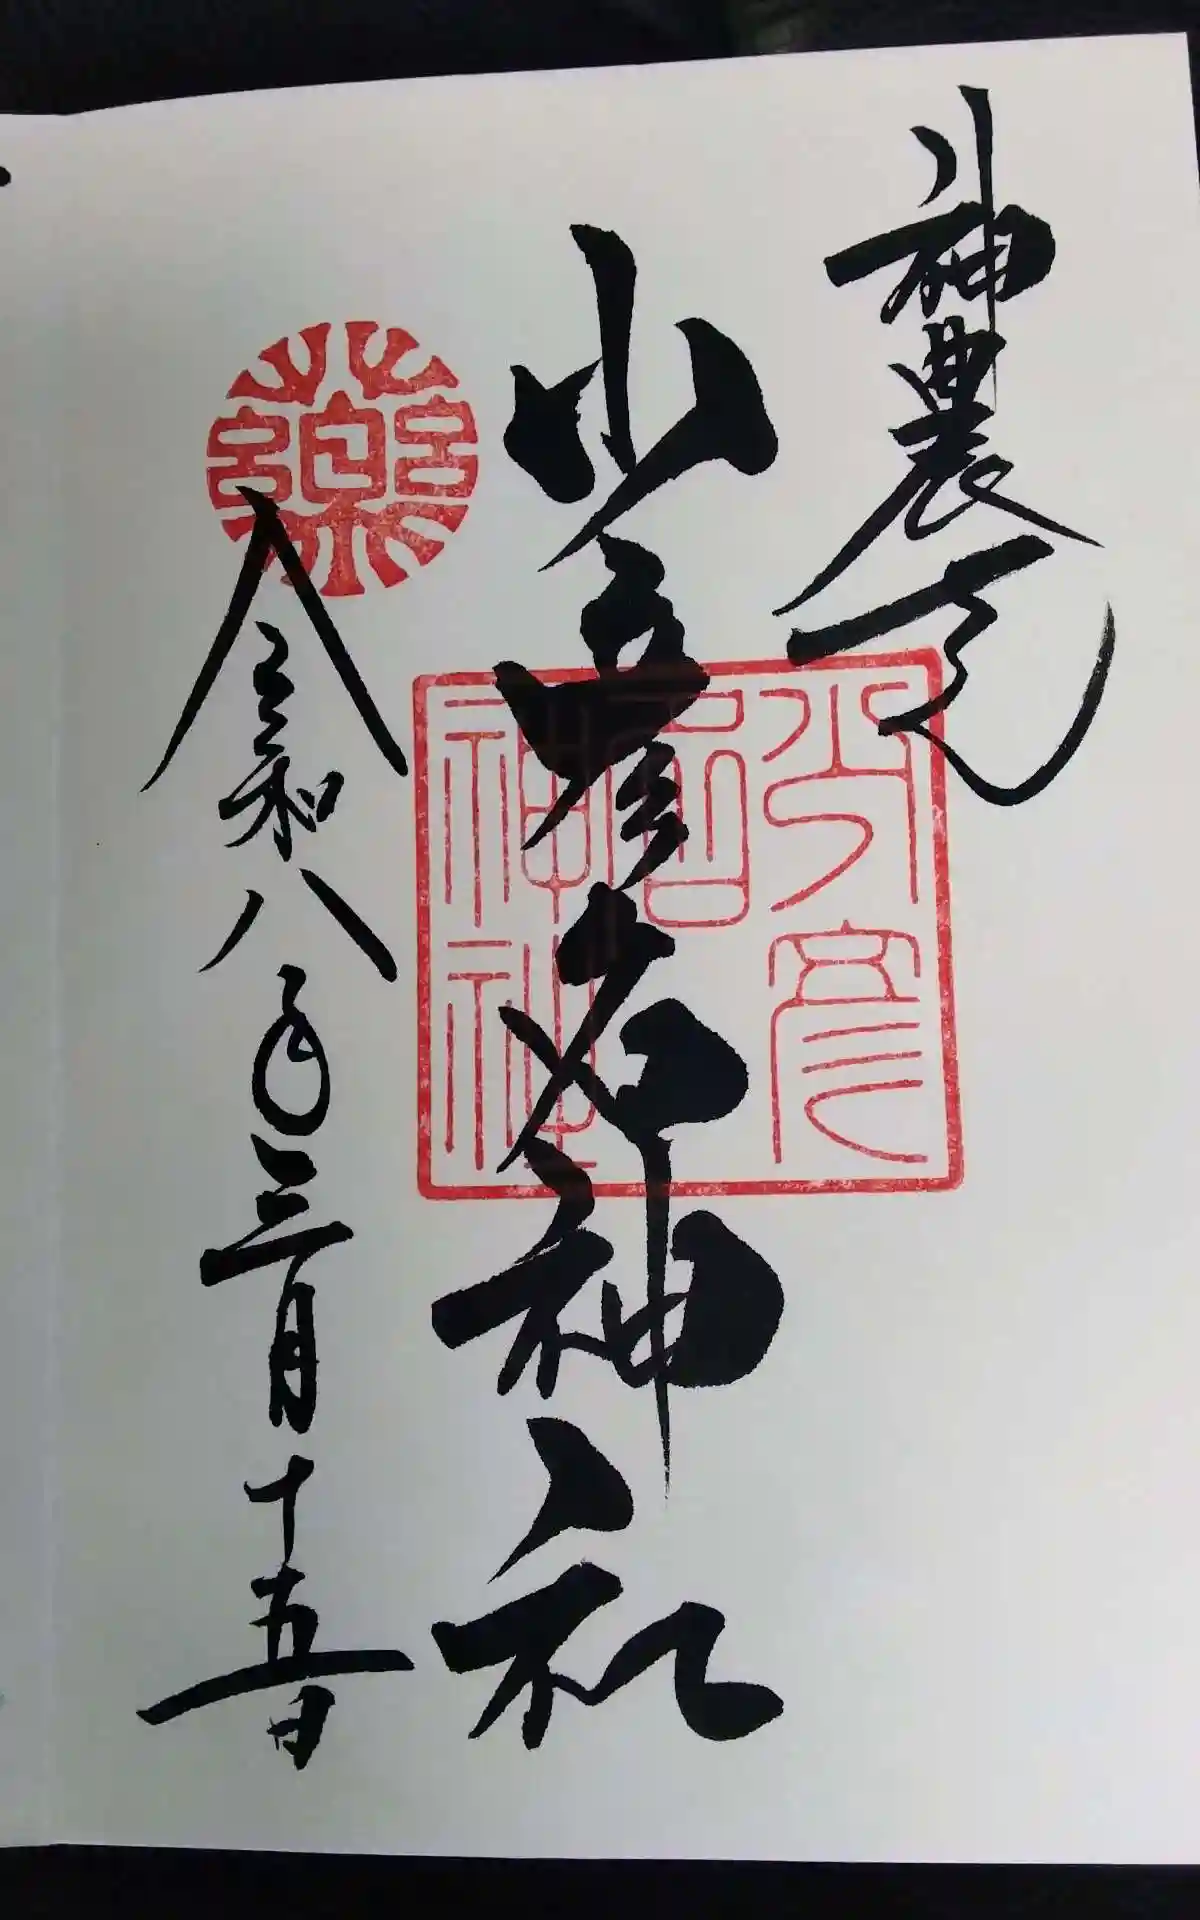 神農さん
少彦名神社
令和八年三月十五日
少彦
名
神社
薬